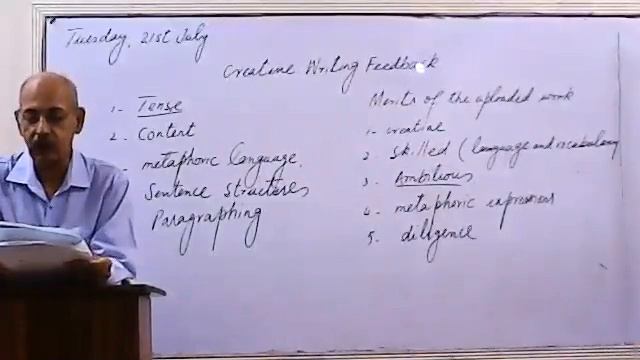 Tuesday, 21st July
Creative Writing Feedback
1- Tense
2- Content
- metaphoric language.
Sentence Structures
Paragraphing
Merits of the uploaded work
1- creative
2. Skilled (language and vocabulary
3. Ambitious
4. metaphoric expressions
5. diligence